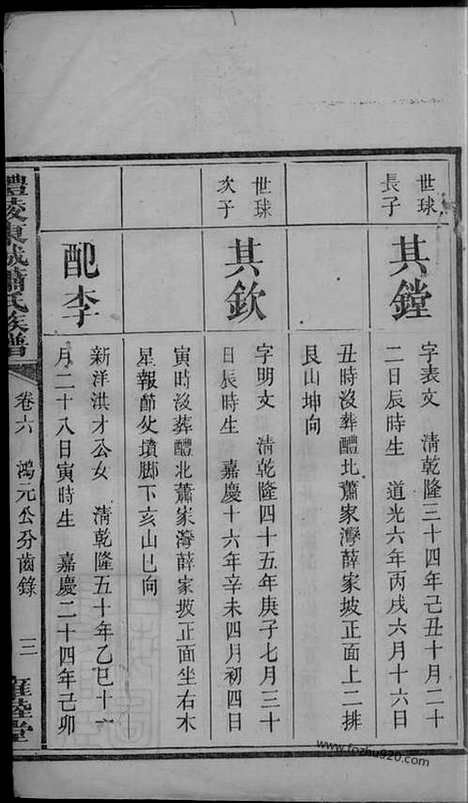 世球
長子
其鏜
字表文 清乾隆三十四年己丑十月二十
二日辰時生 道光六年丙戌六月十六日
丑時沒葬醴北蕭家灣薛家坡正面上二排
艮山坤向
世球
次子
其欽
字明文 清乾隆四十五年庚子七月三十
日辰時生 嘉慶十六年辛未四月初四日
寅時沒葬醴北蕭家灣薛家坡正面坐右木
星報節処墳脚下亥山巳向
配李
新洋洪才公女 清乾隆五十年乙巳十一
月二十八日寅時生 嘉慶二十四年己卯
醴陵東城蕭氏族譜
卷六 鴻元公分齒錄 三
睦堂
www.fozhu920.com